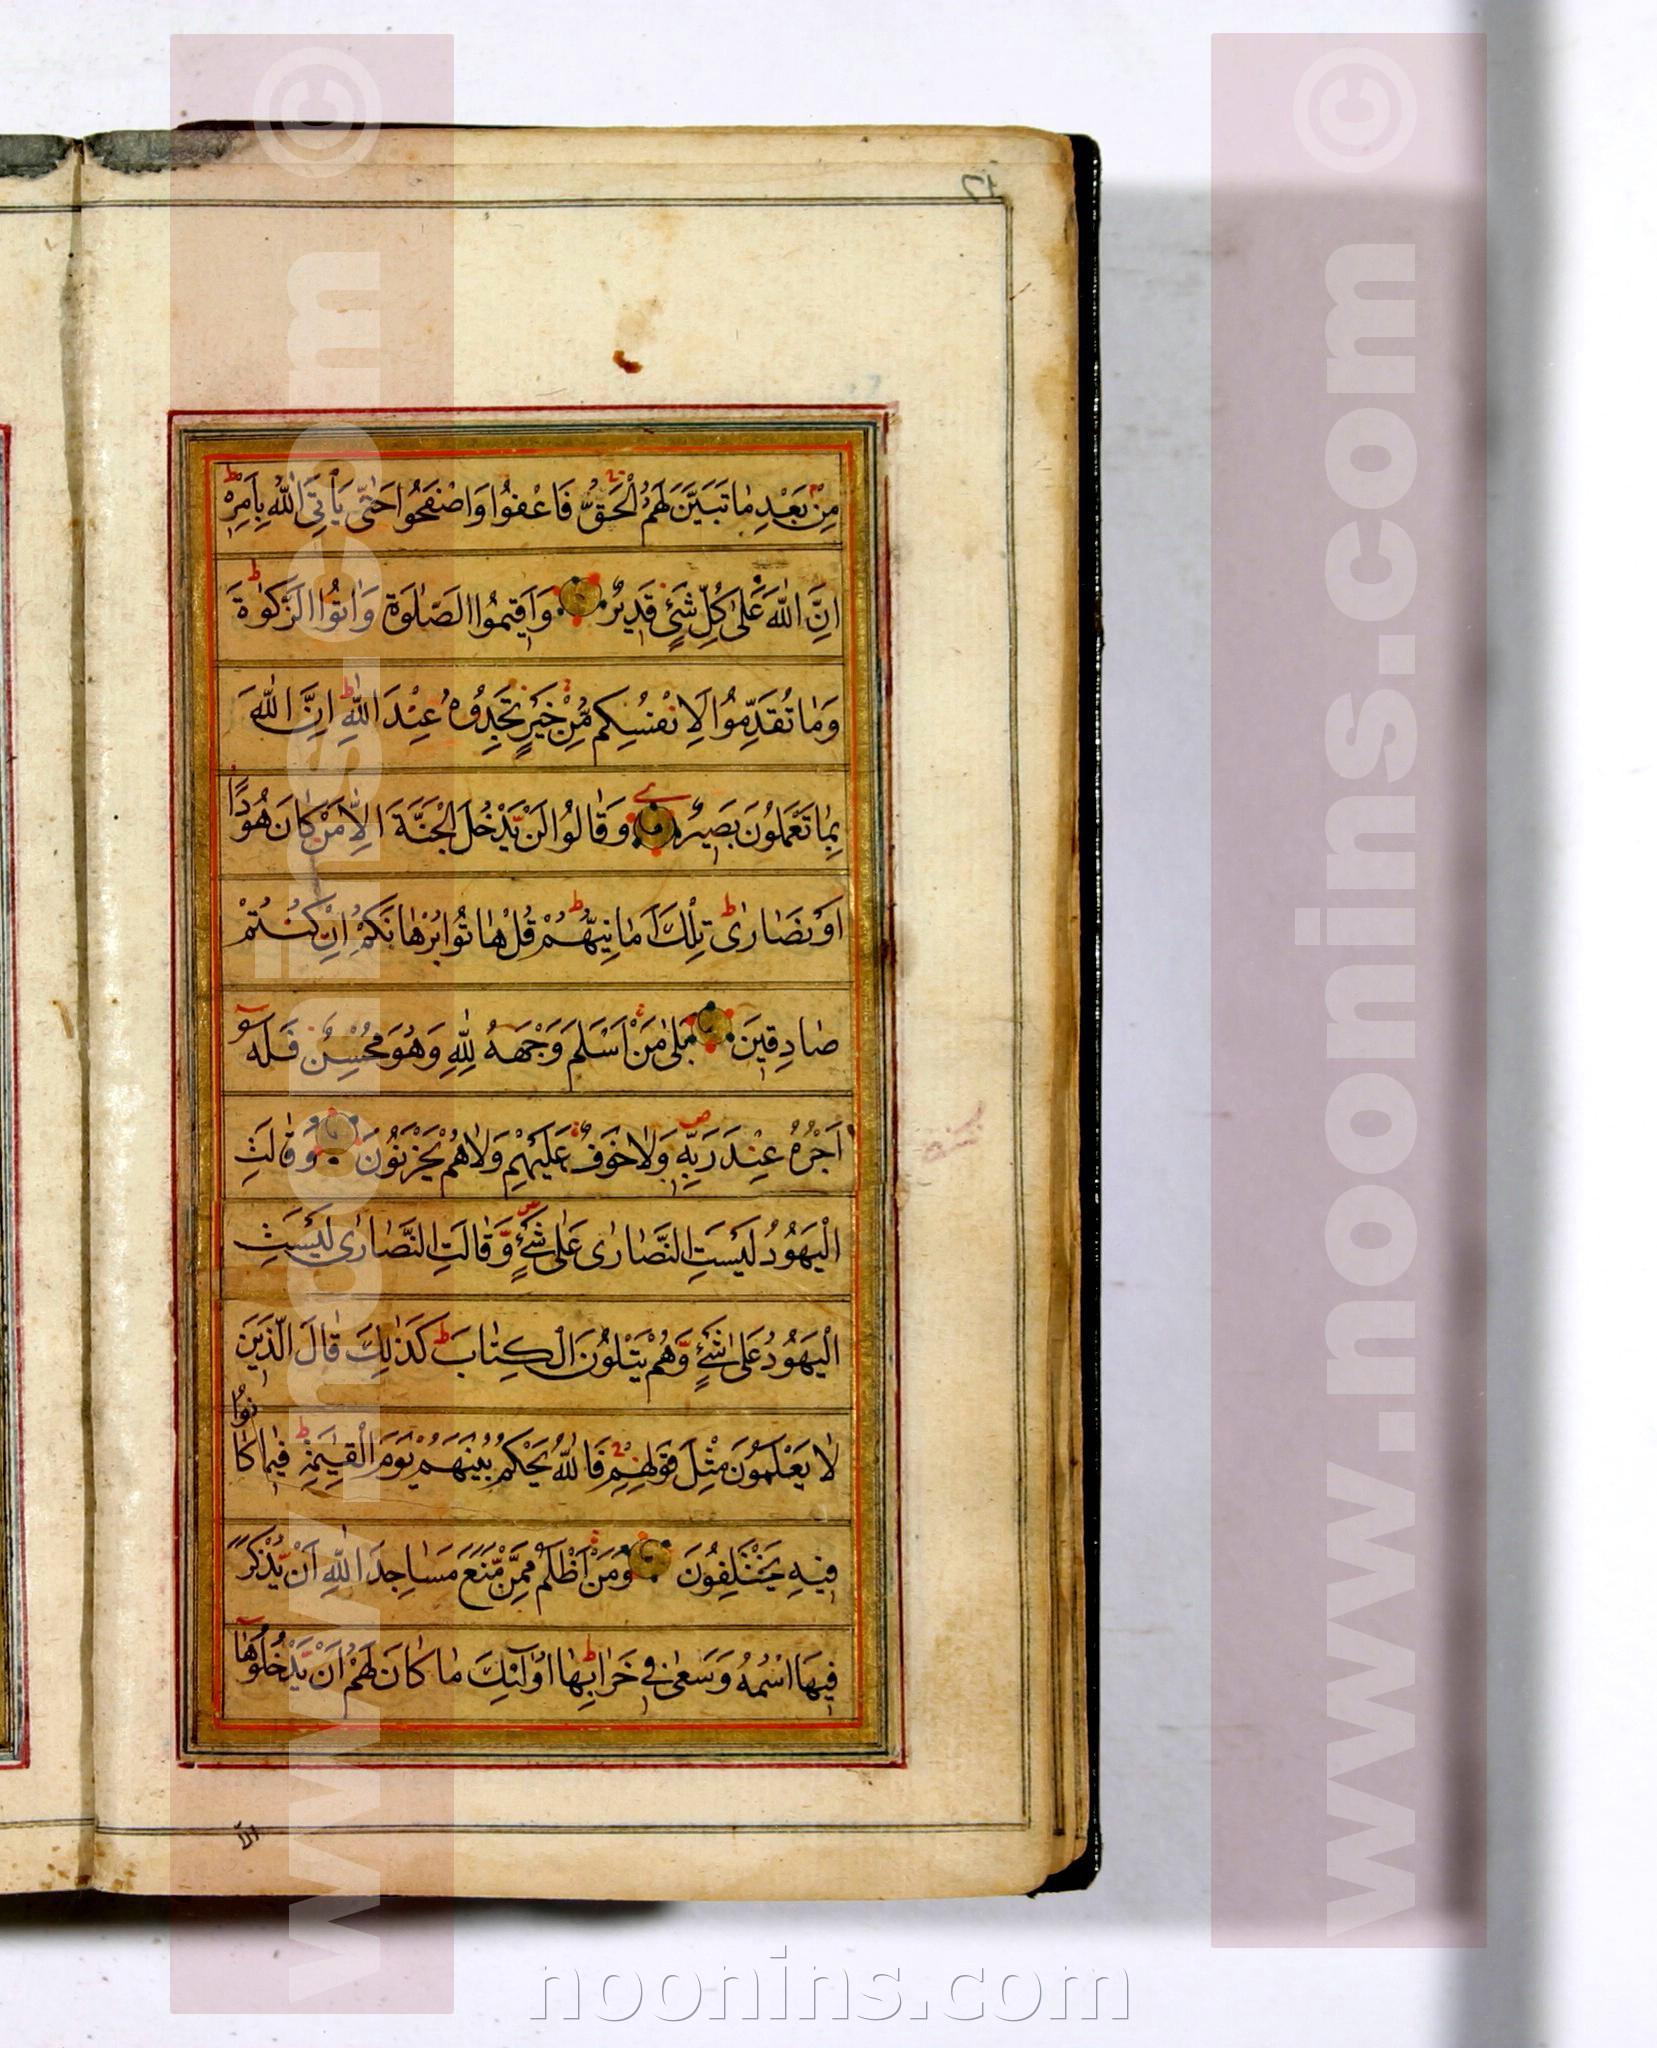 ١٢
مِنْ بَعْدِ مٰا تَبَيَّنَ لَهُمُ الْحَقُّ فَاعْفُوا وَاصْفَحُوا حَتّٰى يَأْتِيَ اللّٰهُ بِاَمْرِهٖ ط
اِنَّ اللّٰهَ عَلٰى كُلِّ شَيْءٍ قَدِيرٌ وَاَقِيمُوا الصَّلٰوةَ وَاٰتُوا الزَّكٰوةَ ط
وَمٰا تُقَدِّمُوا لِاَنْفُسِكُمْ مِنْ خَيْرٍ تَجِدُوهُ عِنْدَ اللّٰهِ ط اِنَّ اللّٰهَ
بِمٰا تَعْمَلُونَ بَصِيرٌ وَقٰالُوا لَنْ يَدْخُلَ الْجَنَّةَ اِلّٰا مَنْ كٰانَ هُودًا
اَوْ نَصٰارٰى ط تِلْكَ اَمٰانِيُّهُمْ ط قُلْ هٰاتُوا بُرْهٰانَكُمْ اِنْ كُنْتُمْ
صٰادِقِينَ بَلٰى مَنْ اَسْلَمَ وَجْهَهُ لِلّٰهِ وَهُوَ مُحْسِنٌ فَلَهُ
اَجْرُهُ عِنْدَ رَبِّهٖ ص وَلٰا خَوْفٌ عَلَيْهِمْ وَلٰا هُمْ يَحْزَنُونَ وَقٰالَتِ
الْيَهُودُ لَيْسَتِ النَّصٰارٰى عَلٰى شَيْءٍ ص وَقٰالَتِ النَّصٰارٰى لَيْسَتِ
الْيَهُودُ عَلٰى شَيْءٍ وَهُمْ يَتْلُونَ الْكِتٰابَ ط كَذٰلِكَ قٰالَ الَّذِينَ
لٰا يَعْلَمُونَ مِثْلَ قَوْلِهِمْ فَاللّٰهُ يَحْكُمُ بَيْنَهُمْ يَوْمَ الْقِيٰمَةِ ط فِيمٰا كٰانُوا
فِيهِ يَخْتَلِفُونَ وَمَنْ اَظْلَمُ مِمَّنْ مَنَعَ مَسٰاجِدَ اللّٰهِ اَنْ يُذْكَرَ
فِيهَا اسْمُهُ وَسَعٰى فِي خَرٰابِهٰا ط اُولٰٓئِكَ مٰا كٰانَ لَهُمْ اَنْ يَدْخُلُوهٰا
الا
www.noonins.com ©
www.noonins.com ©
noonins.com